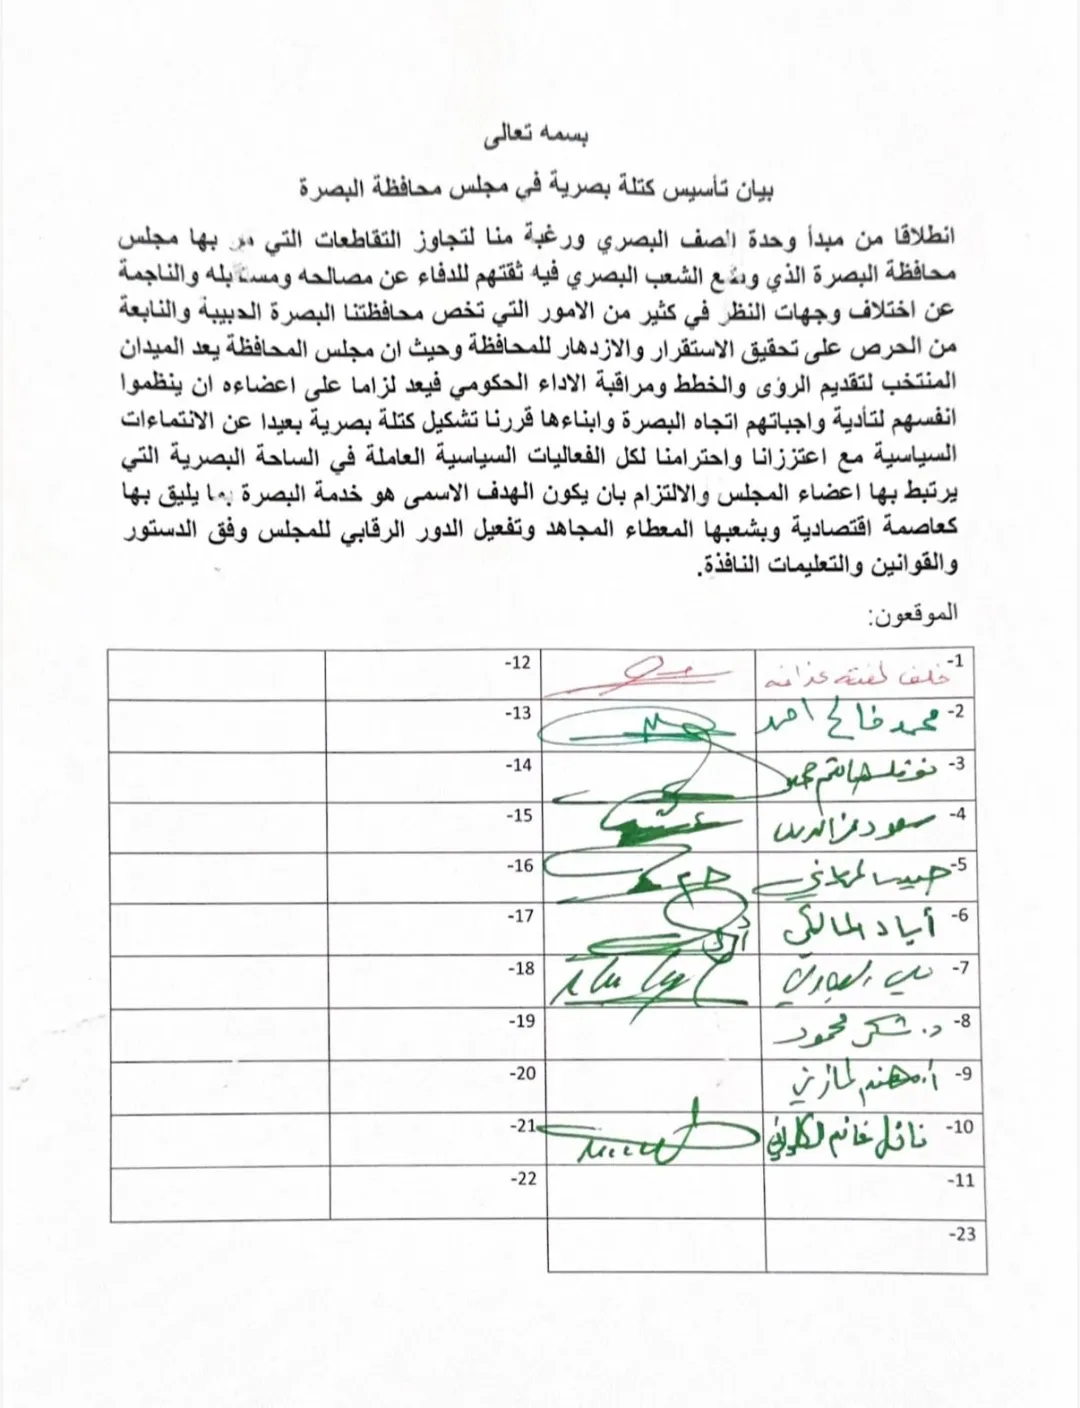 بسمه تعالى
بيان تأسيس كتلة بصرية في مجلس محافظة البصرة
انطلاقا من مبدأ وحدة الصف البصري ورغبة منا لتجاوز التقاطعات التي مر بها مجلس
محافظة البصرة الذي وضع الشعب البصري فيه ثقتهم للدفاء عن مصالحه ومستقبله والناجمة
عن اختلاف وجهات النظر في كثير من الامور التي تخص محافظتنا البصرة الحبيبة والنابعة
من الحرص على تحقيق الاستقرار والازدهار للمحافظة وحيث ان مجلس المحافظة يعد الميدان
المنتخب لتقديم الرؤى والخطط ومراقبة الاداء الحكومي فيعد لزاما على اعضاءه ان ينظموا
انفسهم لتأدية واجباتهم اتجاه البصرة وابناءها قررنا تشكيل كتلة بصرية بعيدا عن الانتماءات
السياسية مع اعتززانا واحترامنا لكل الفعاليات السياسية العاملة في الساحة البصرية التي
يرتبط بها اعضاء المجلس والالتزام بان يكون الهدف الاسمى هو خدمة البصرة بما يليق بها
كعاصمة اقتصادية وبشعبها المعطاء المجاهد وتفعيل الدور الرقابي للمجلس وفق الدستور
والقوانين والتعليمات النافذة.
الموقعون:
1- خلف لفتة
12-
2- محمد فالح احمد
13-
3- نوفل هاشم
14-
4- سعود عز الدين
15-
5- حبيب
16-
6- أياد المالكي
17-
7-
18-
8- د. شكر محمود
19-
9- أ. مهند المازني
20-
10- نائل غانم
21-
11-
22-
23-